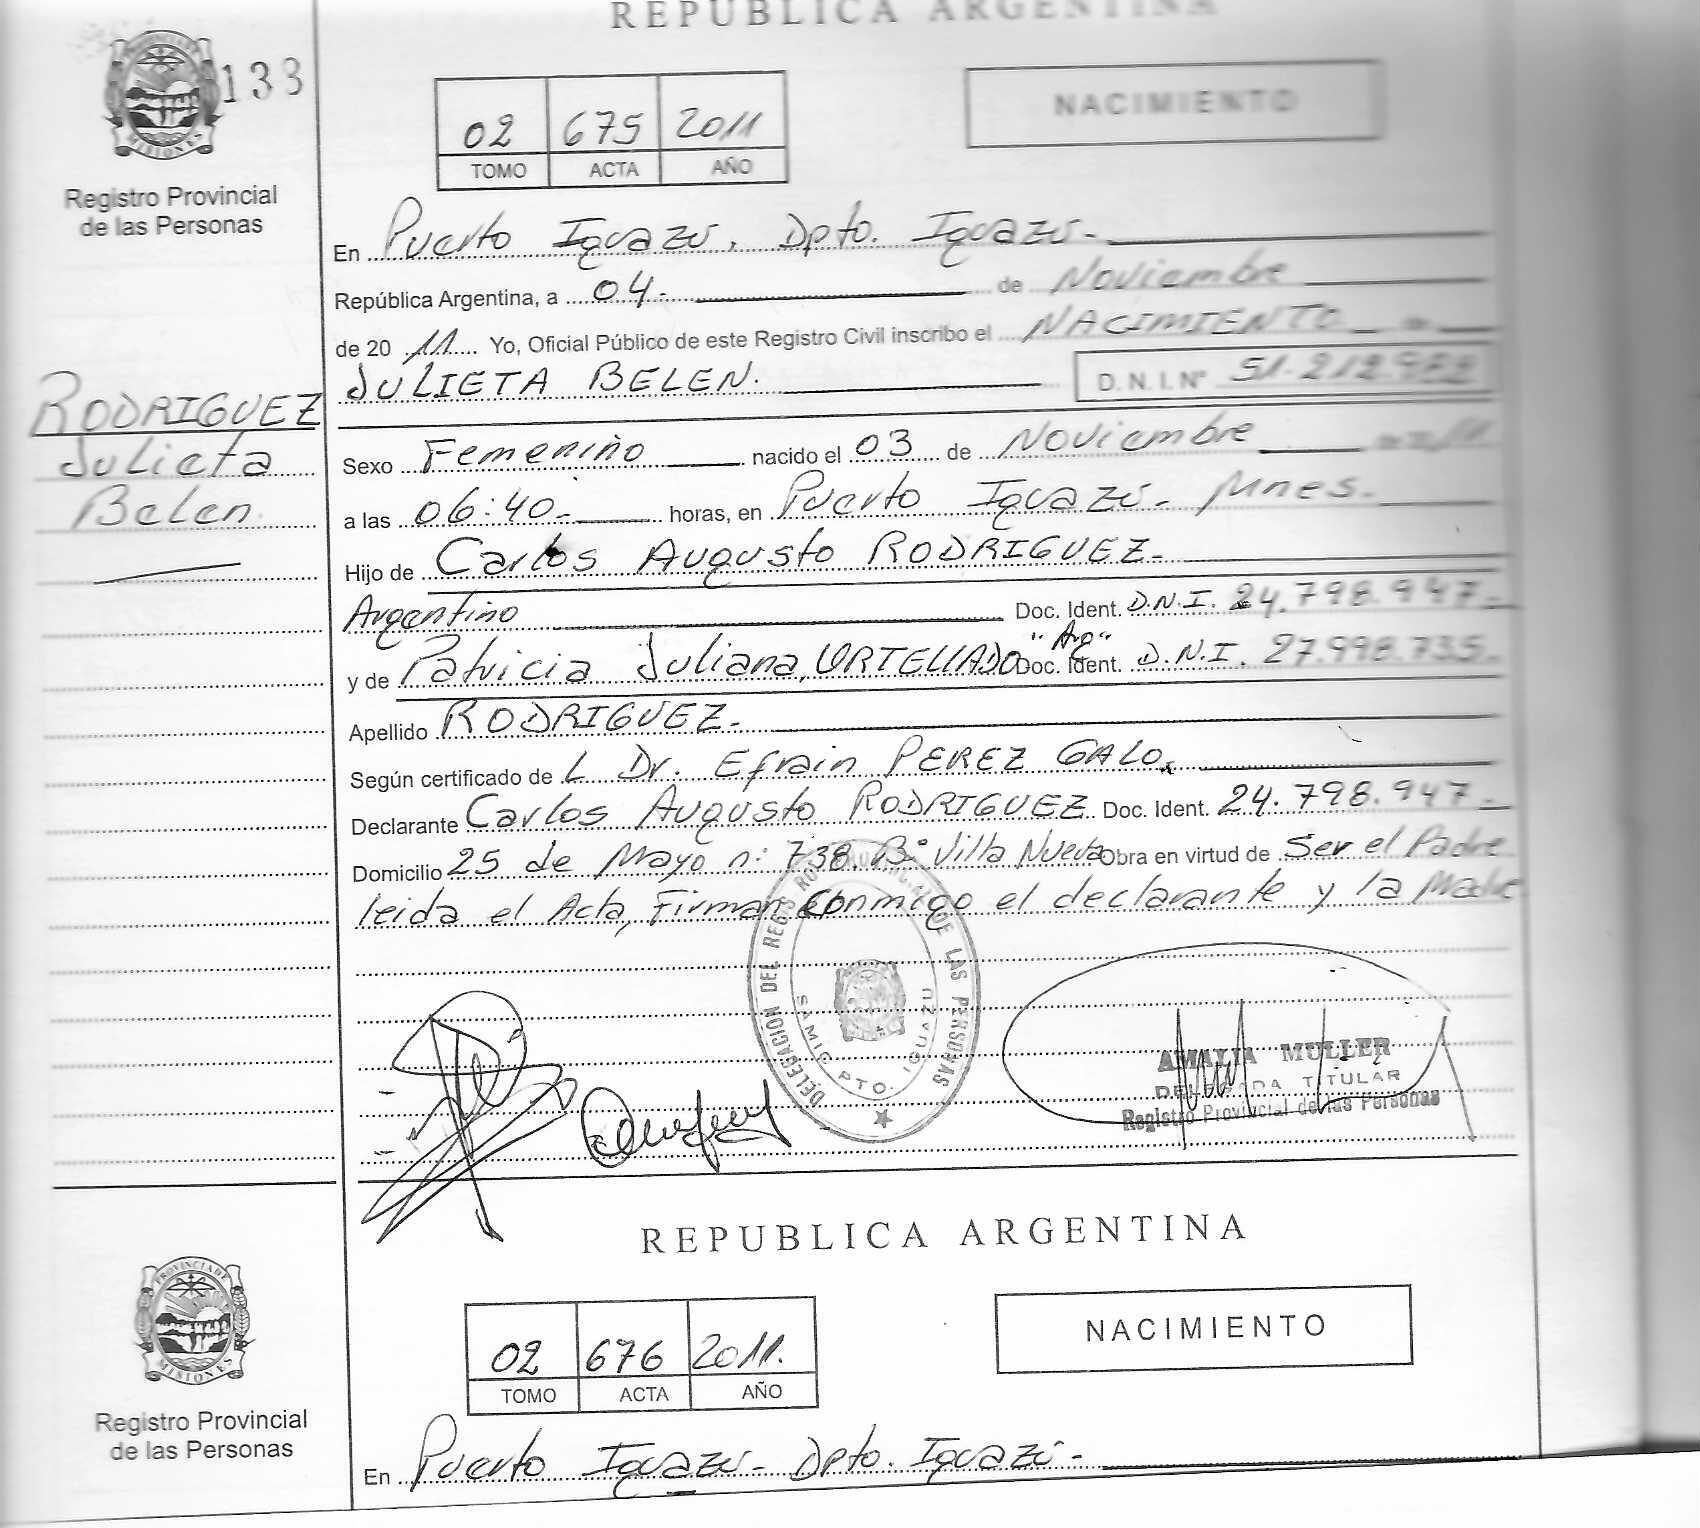 REPUBLICA ARGENTINA
133
PROVINCIA DE MISIONES
Registro Provincial
de las Personas
02 675 2011
TOMO ACTA AÑO
NACIMIENTO
En Puerto Iguazú, Dpto. Iguazú-
República Argentina, a 04- de Noviembre
de 20 11 Yo, Oficial Público de este Registro Civil inscribo el NACIMIENTO
JULIETA BELEN. D.N.I. Nº
RODRIGUEZ
Julieta
Belen
Sexo Femenino nacido el 03 de Noviembre
a las 06:40- horas, en Puerto Iguazú- Mnes-
Hijo de Carlos Augusto RODRIGUEZ-
Argentino Doc. Ident. D.N.I. 24.798.947-
"Arg"
y de Patricia Juliana, URTELLADO Doc. Ident. D.N.I. 27.998.735-
Apellido RODRIGUEZ-
Según certificado de L Dr. Efrain PEREZ GALO
Declarante Carlos Augusto RODRIGUEZ Doc. Ident. 24.798.947-
Domicilio 25 de Mayo n: 738 B° Villa Nueva Obra en virtud de Ser el Padre
leida el Acta, Firman Conmigo el declarante y la Madre
DELEGACION DEL REGISTRO PROVINCIAL DE LAS PERSONAS
SAMIC PTO. IGUAZU
AMALIA MULLER
DELEGADA TITULAR
Registro Provincial de las Personas
REPUBLICA ARGENTINA
PROVINCIA DE MISIONES
Registro Provincial
de las Personas
02 676 2011.
TOMO ACTA AÑO
NACIMIENTO
En Puerto Iguazú- Dpto. Iguazú-